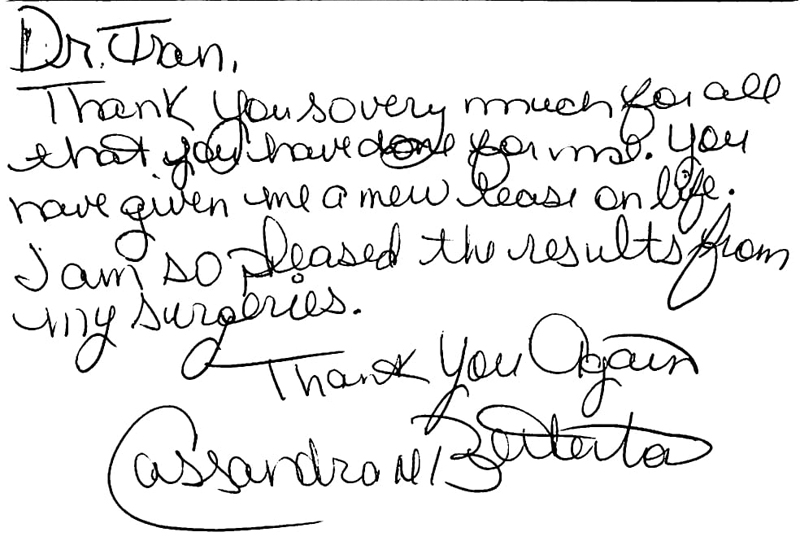 Dr. Tran,
Thank you so very much for all
that you have done for me. You
have given me a new lease on life.
I am so pleased the results from
my surgeries.
Thank You Again
Cassandra M